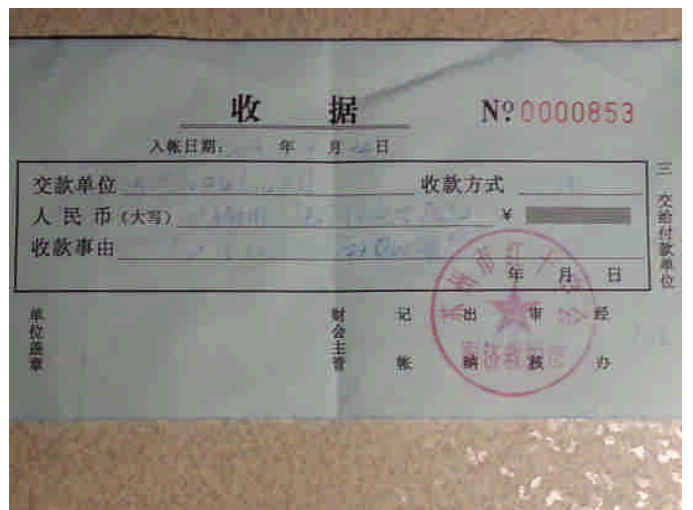 收 据
Nº 0000853
入帐日期： 年 月 日
交款单位 收款方式
人民币（大写） ¥
收款事由
年 月 日
三 交给付款单位
单位盖章 财会主管 记帐 出纳 审核 经办
苏州市红十字会